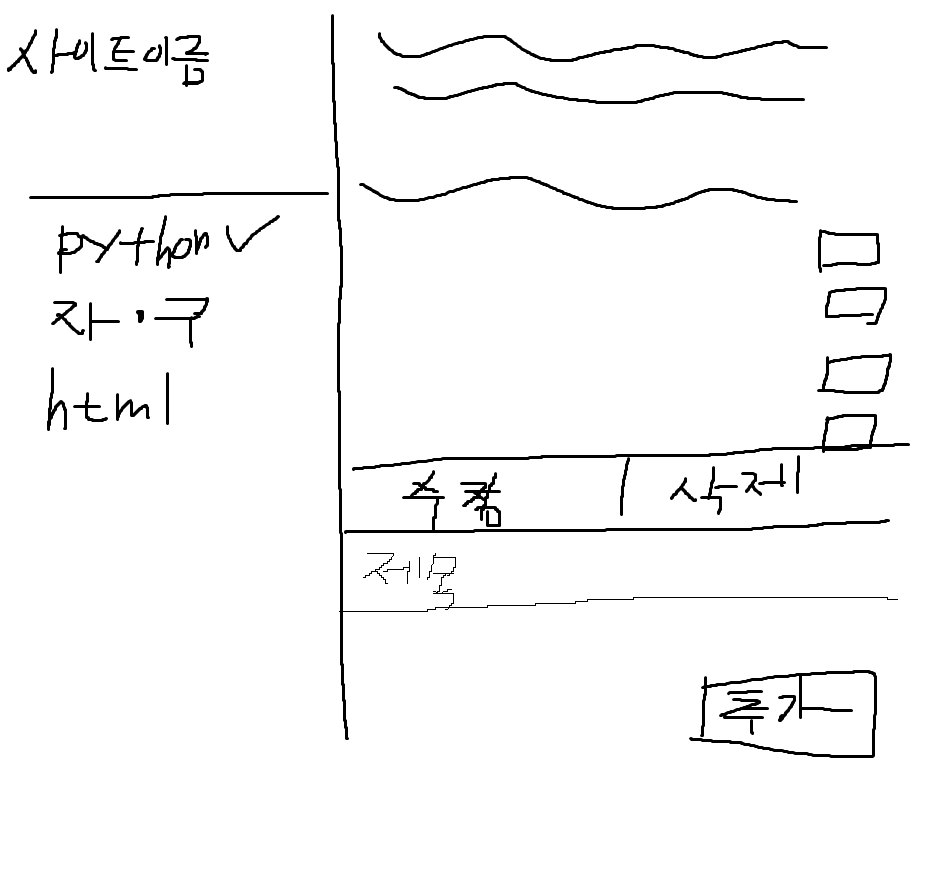 사이트이름
python✓
자·구
html
수정 | 삭제
제목
추가